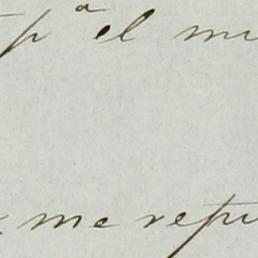 pª el mi
me repu